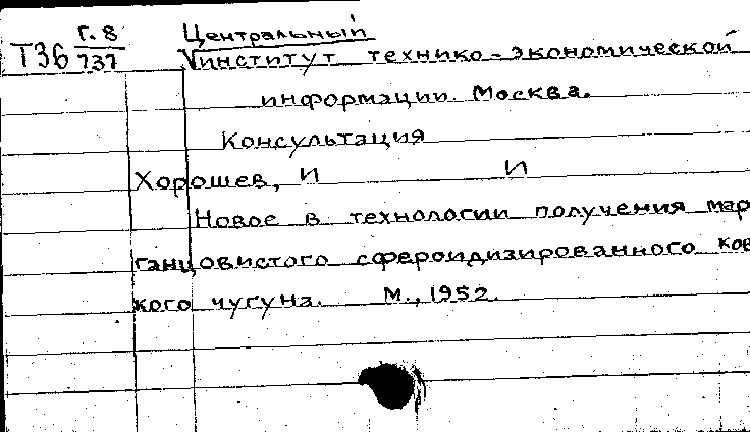 Т36 Г.8/737 Центральный
институт технико-экономической
информации. Москва.
Консультация
Хорошев, И И
Новое в технологии получения мар
ганцовистого сфероидизированного ков
кого чугуна. М., 1952.